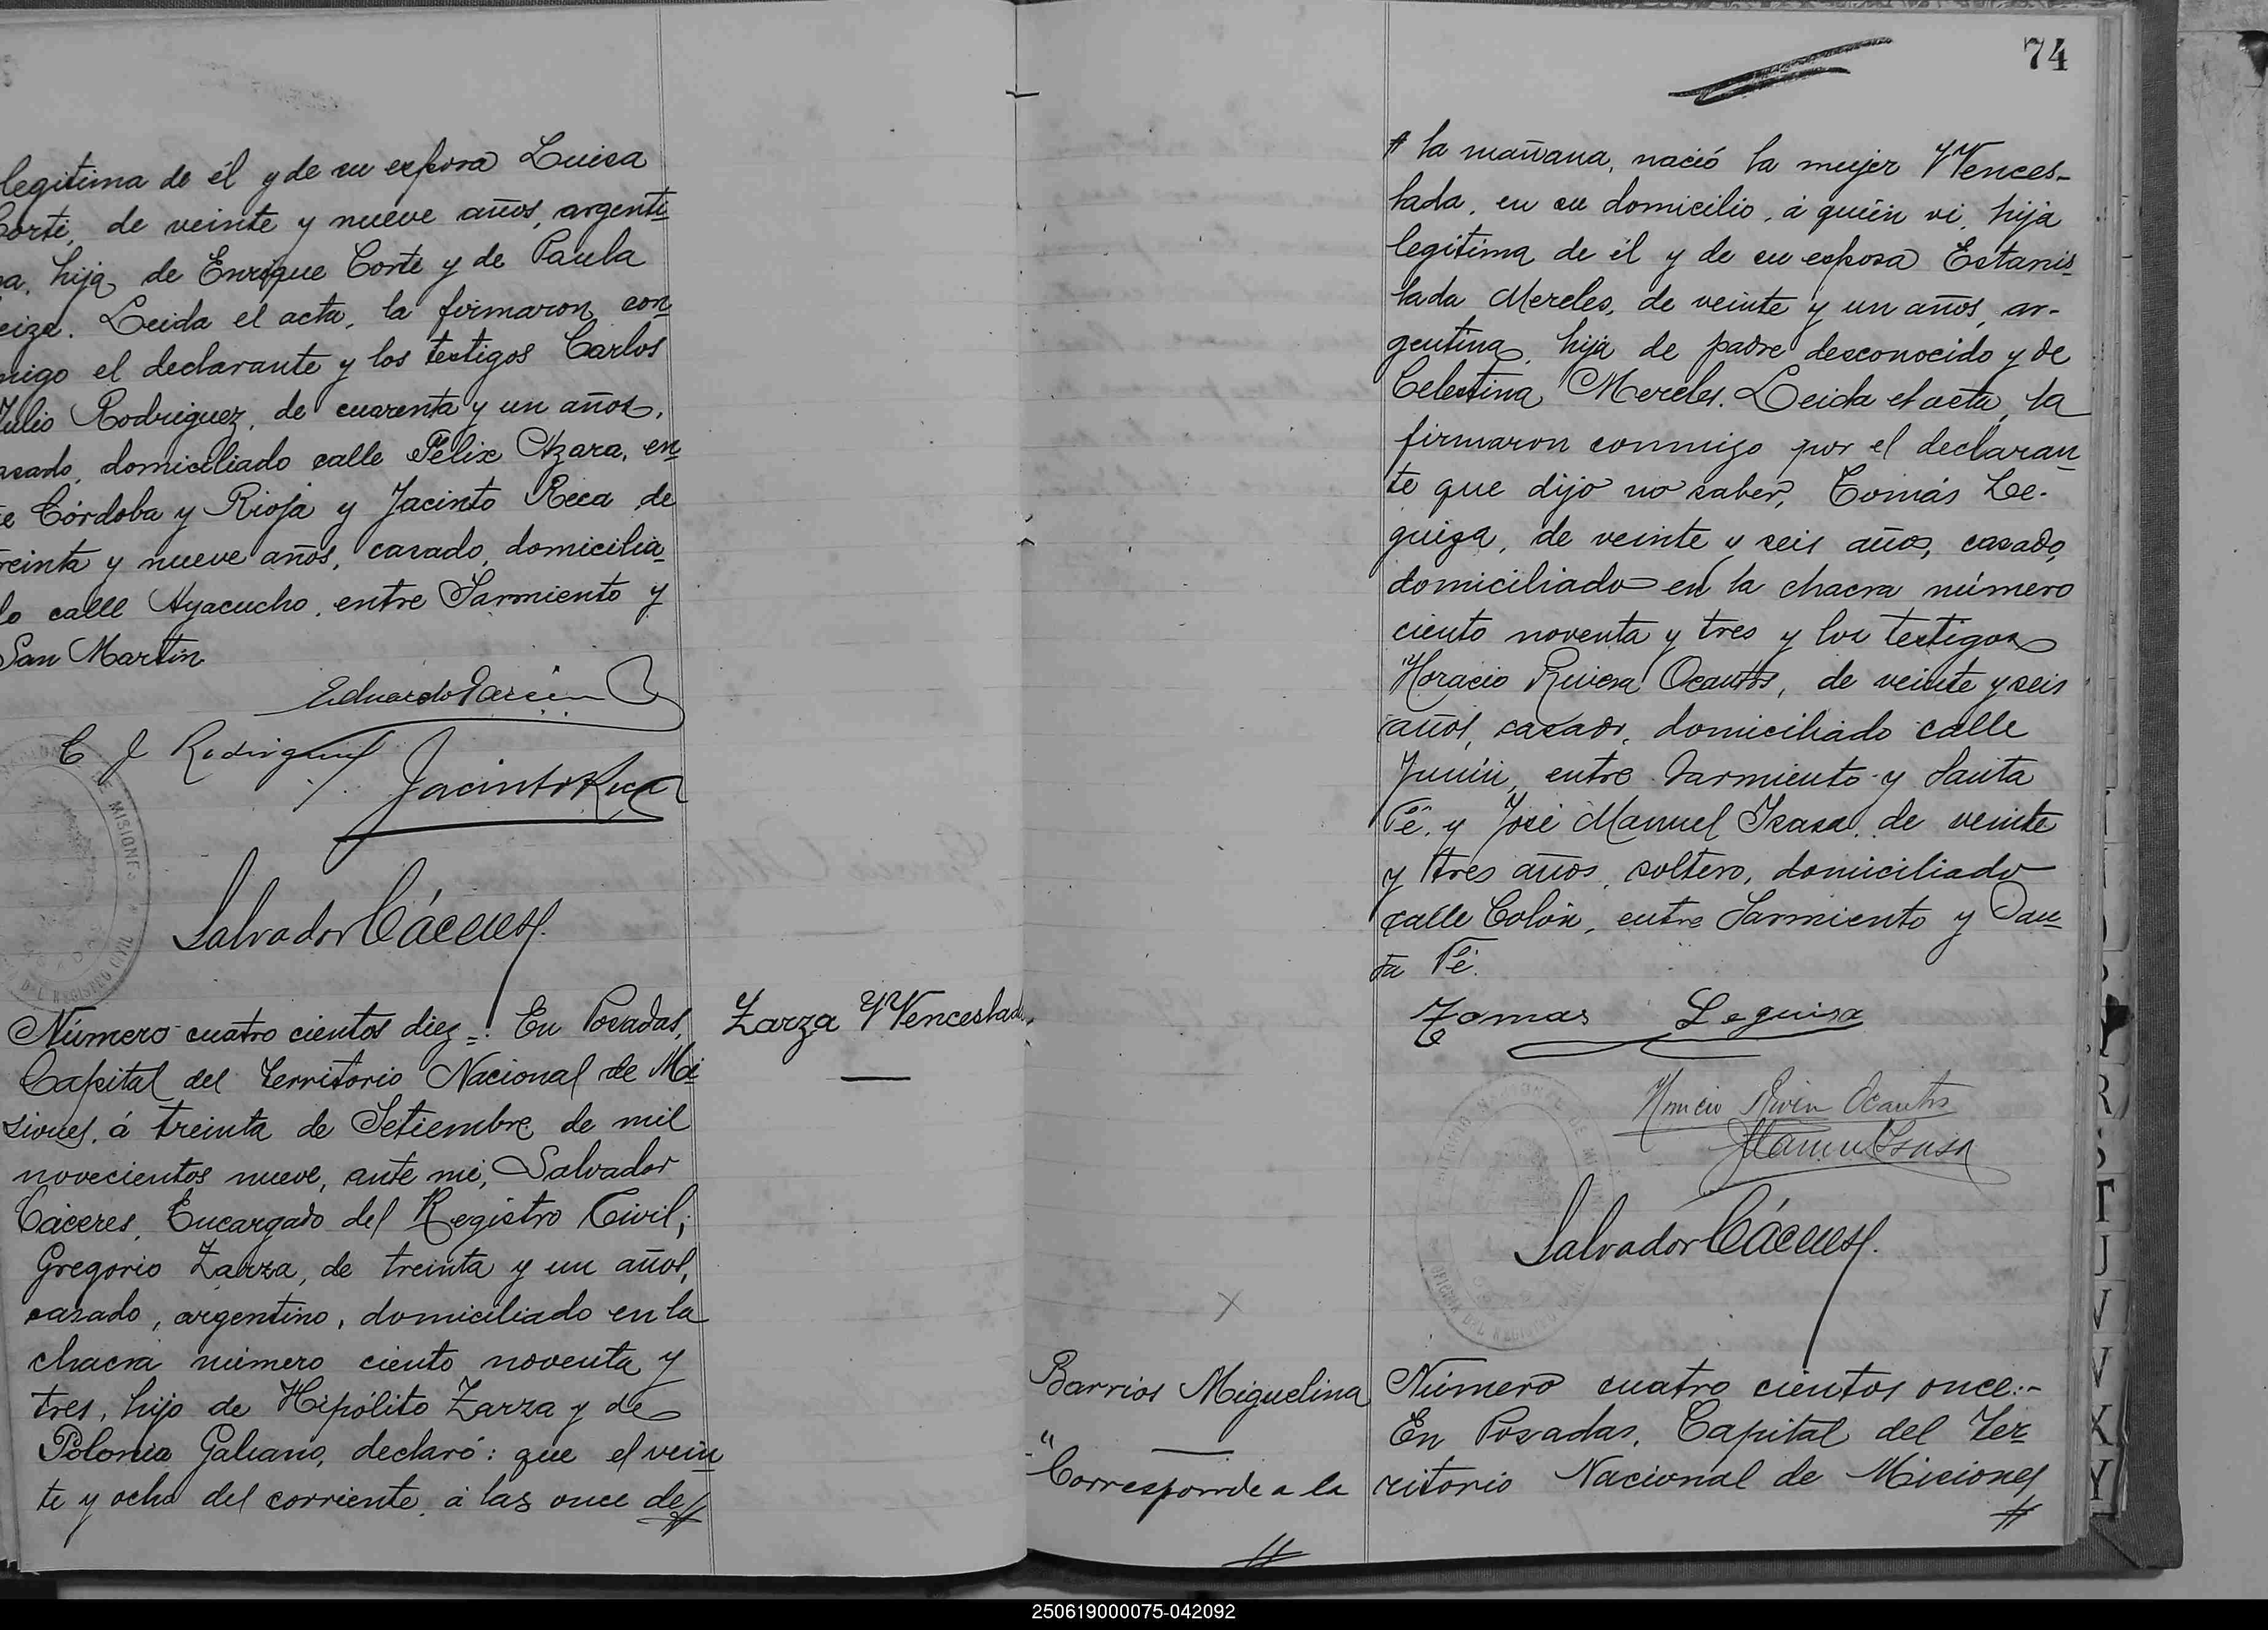 legitima de él y de su esposa Luisa
Corti, de veinte y nueve años, argenti-
na, hija de Enrique Corte y de Paula
Leida el acta, la firmaron con
migo el declarante y los testigos Carlos
Julio Rodriguez, de cuarenta y un años,
casado, domiciliado calle Félix Azara, en
te Córdoba y Rioja y Jacinto Reca de
treinta y nueve años, casado, domicilia-
do calle Ayacucho, entre Sarmiento y
San Martin
Eduardo
C J Rodriguez
Jacinto Reca
Salvador Cáceres
Número cuatro cientos diez =: En Posadas,
Capital del Territorio Nacional de Mi
siones, á treinta de Setiembre de mil
novecientos nueve, ante mi, Salvador
Cáceres, Encargado del Registro Civil;
Gregorio Zarza, de treinta y un años,
casado, argentino, domiciliado en la
chacra número ciento noventa y
tres, hijo de Hipólito Zarza y de
Polonia Galiano, declaró: que el vein
te y ocho del corriente, á las once de//
Zarza Wenceslada
74
// la mañana, nació la mujer Wences-
lada, en su domicilio, á quién vi, hija
legitima de él y de su esposa Estanis
lada Mereles, de veinte y un años, ar-
gentina, hija de padre desconocido y de
Celestina Mereles. Leida el acta, la
firmaron conmigo por el declaran
te que dijo no saber, Tomás Le-
guiza, de veinte y seis años, casado,
domiciliado en la chacra número
ciento noventa y tres y los testigos
Horacio Rivera Ocantos, de veinte y seis
años, casado, domiciliado calle
Junín, entre Sarmiento y Santa
Fé, y José Manuel Isasa, de veinte
y tres años, soltero, domiciliado
calle Colón, entre Sarmiento y San
ta Fé.
Tomas Leguisa
Horacio Rivera Ocantos
JManuel Isasa
Salvador Cáceres
Barrios Miguelina
"Corresponde a la
//
Número cuatro cientos once:-
En Posadas, Capital del Ter
ritorio Nacional de Misiones
//
R
S
T
U
V
X
Y
250619000075-042092